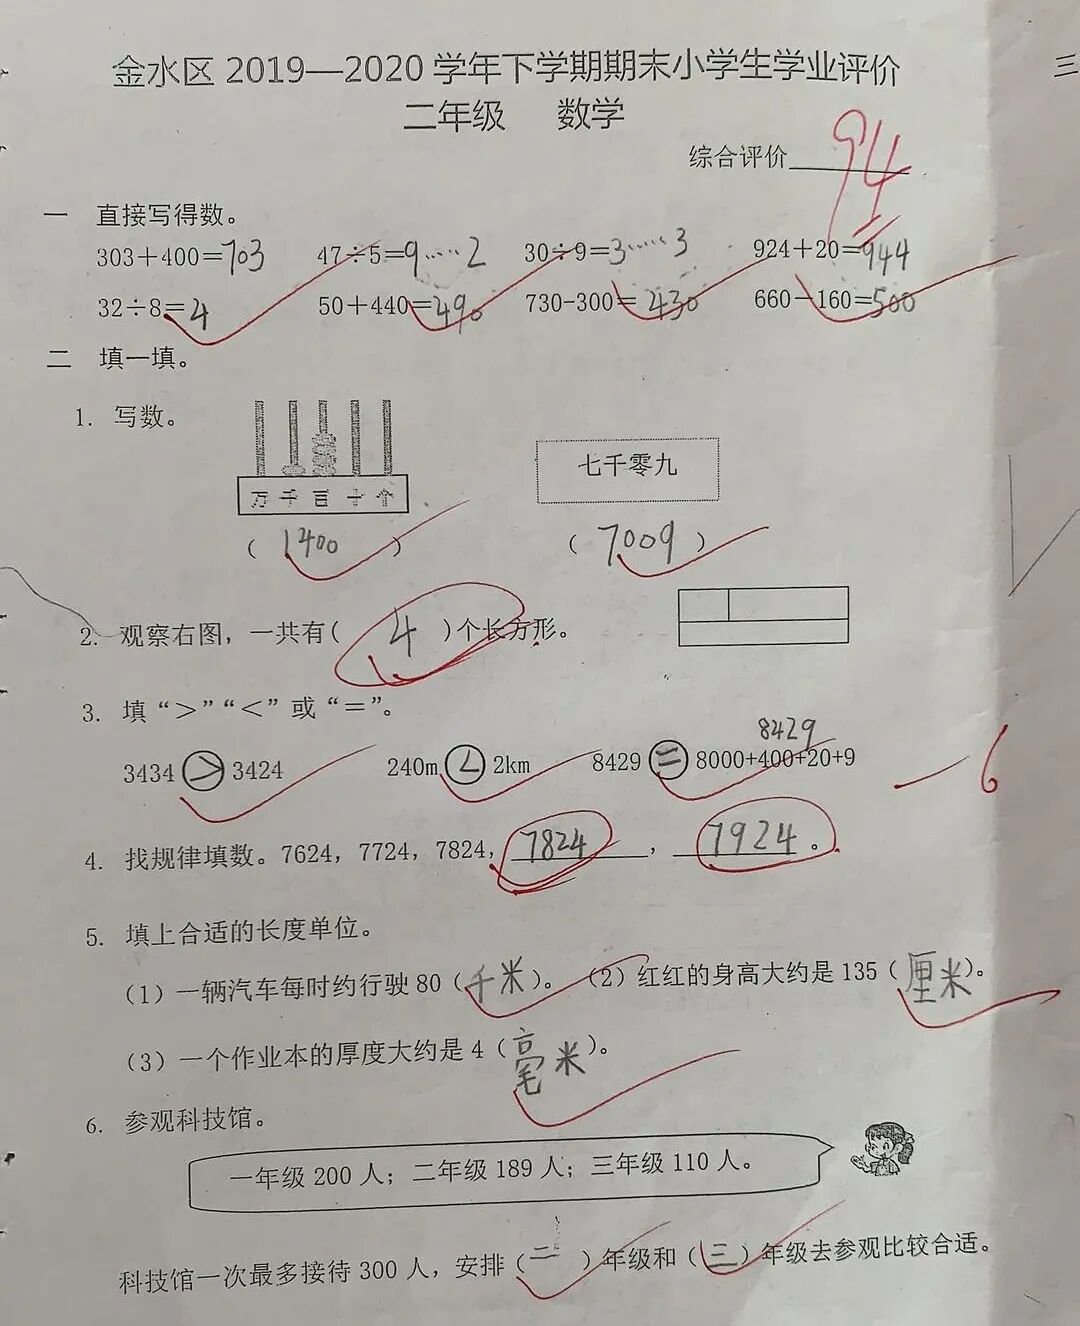 金水区 2019—2020 学年下学期期末小学生学业评价
三
二年级 数学
综合评价 94
一 直接写得数。
303＋400＝703 47÷5＝9……2 30÷9＝3……3 924＋20＝944
32÷8＝4 50＋440＝490 730-300＝430 660－160＝500
二 填一填。
1. 写数。
七千零九
万 千 百 十 个
（ 1400 ） （ 7009 ）
2. 观察右图，一共有( 4 )个长方形。
3. 填“＞”“＜”或“＝”。
8429
3434 ＞ 3424 240m ＜ 2km 8429 ＝ 8000+400+20+9
—6
4. 找规律填数。7624，7724，7824，7824，7924。
5. 填上合适的长度单位。
（1）一辆汽车每时约行驶 80（千米）。（2）红红的身高大约是 135（厘米）。
（3）一个作业本的厚度大约是 4（毫米）。
6. 参观科技馆。
一年级 200 人；二年级 189 人；三年级 110 人。
科技馆一次最多接待 300 人，安排（二）年级和（三）年级去参观比较合适。